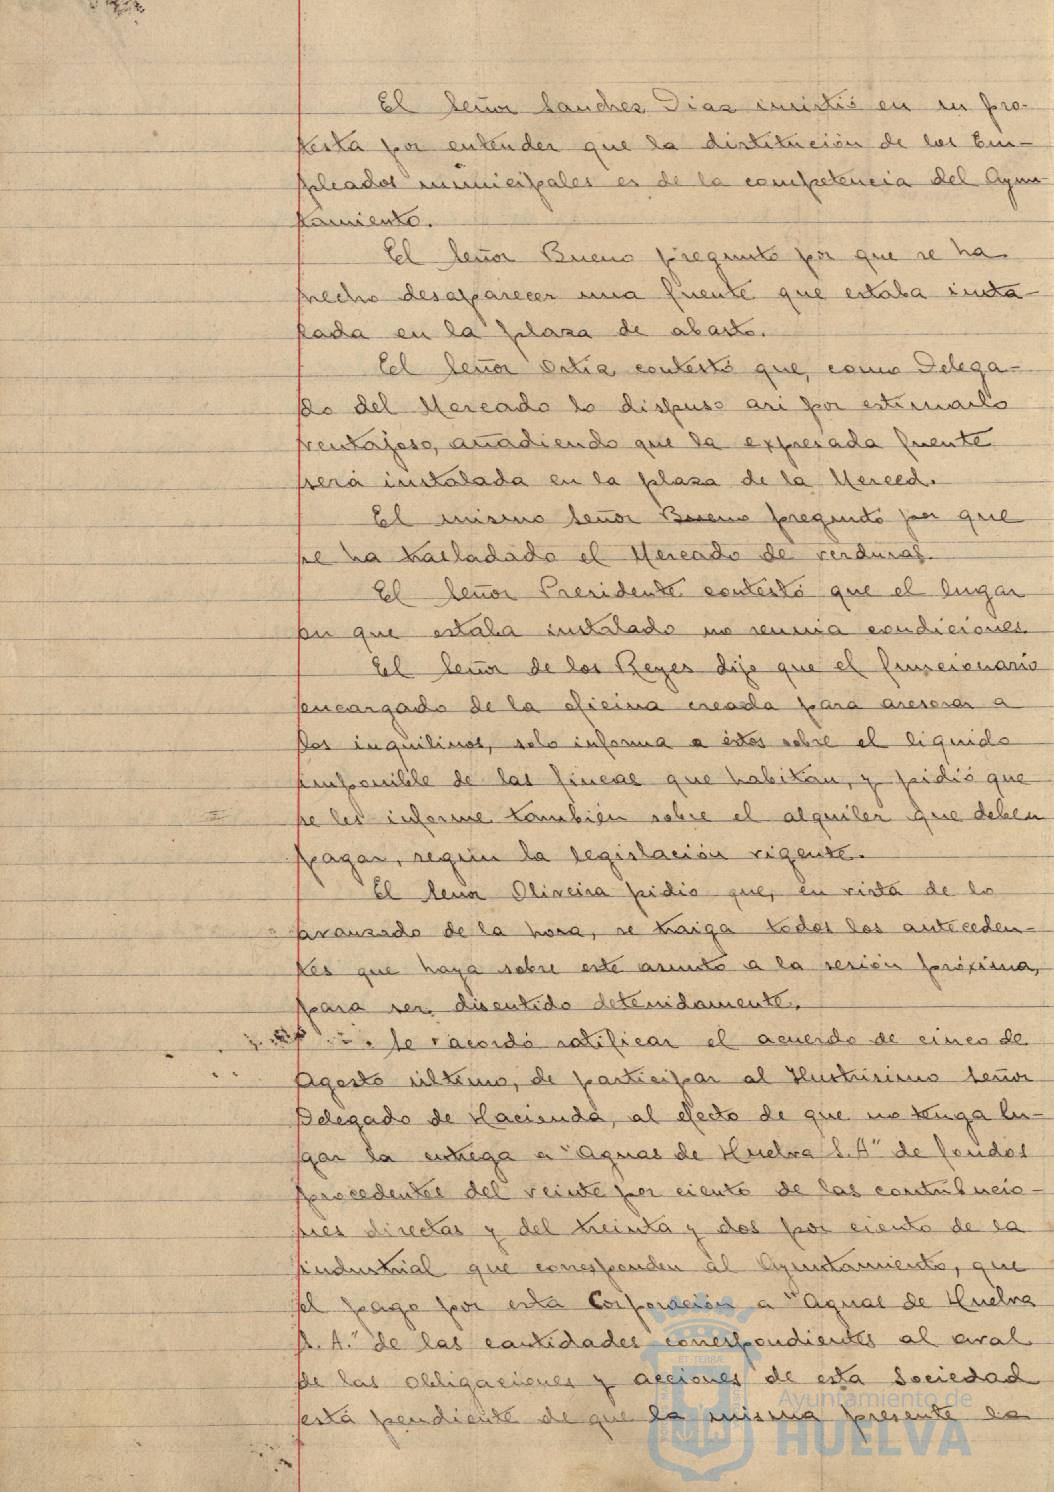 El Señor Sanchez Diaz insistió en su pro-
testa por entender que la distitución de los Em-
pleados municipales es de la competencia del Ayun-
tamiento.
El Señor Bueno preguntó por que se ha
hecho desaparecer una fuente que estaba insta-
lada en la plaza de abasto.
El Señor Ortiz contestó que, como Delega-
do del Mercado lo dispuso asi por estimarlo
ventajoso, añadiendo que la expresada fuente
será instalada en la plaza de la Merced.
El mismo Señor Bueno preguntó por que
se ha trasladado el Mercado de verduras.
El Señor Presidente contestó que el lugar
en que estaba instalado no reunia condiciones.
El Señor de los Reyes dijo que el funcionario
encargado de la oficina creada para asesorar a
los inquilinos, solo informa a éstos sobre el liquido
imponible de las fincas que habitan, y pidió que
se les informe también sobre el alquiler que deben
pagar, según la legislación vigente.
El Señor Oliveira pidió que, en vista de lo
avanzado de la hora, se traiga todos los anteceden-
tes que haya sobre este asunto a la sesión próxima,
para ser discutido detenidamente.
Se acordó ratificar el acuerdo de cinco de
Agosto último, de participar al Ilustrísimo Señor
Delegado de Hacienda, al efecto de que no tenga lu-
gar la entrega a "Aguas de Huelva S.A" de fondos
procedentes del veinte por ciento de las contribucio-
nes directas y del treinta y dos por ciento de la
industrial que corresponden al Ayuntamiento, que
el pago por esta Corporación a "Aguas de Huelva
S. A." de las cantidades correspondientes al aval
de las obligaciones y acciones de esta Sociedad
está pendiente de que la misma presente la
Ayuntamiento de
HUELVA